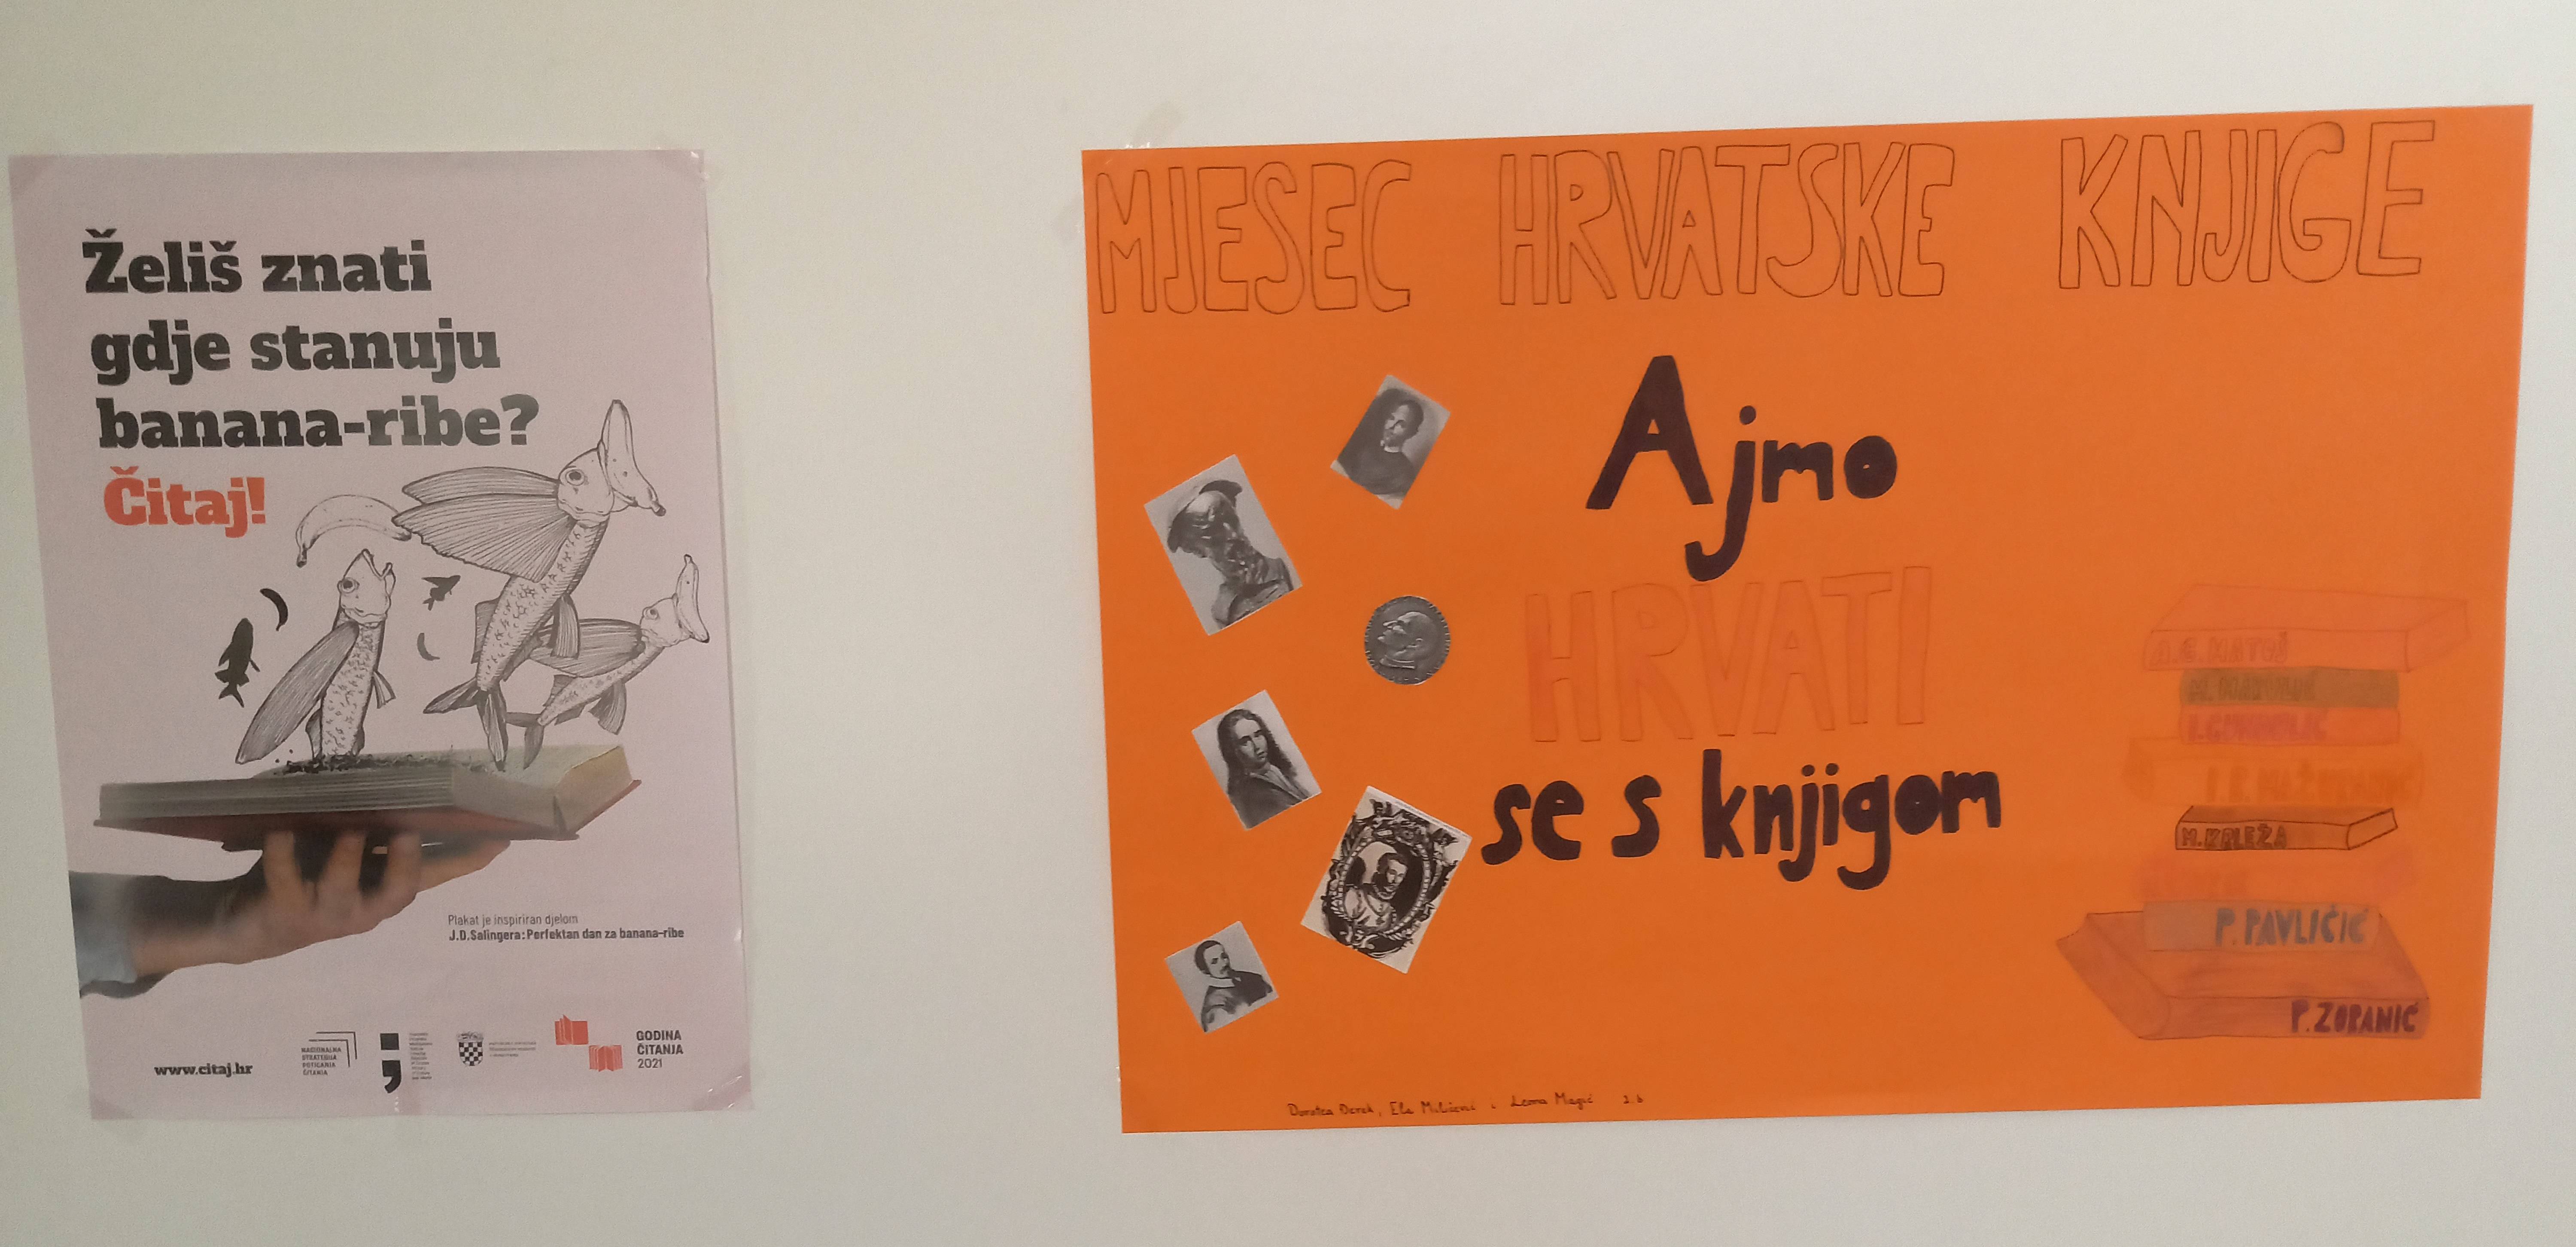 Želiš znati
gdje stanuju
banana-ribe?
Čitaj!
Plakat je inspiriran djelom
J.D.Salingera: Perfektan dan za banana-ribe
www.citaj.hr
NACIONALNA
STRATEGIJA
POTICANJA
ČITANJA
GODINA
ČITANJA
2021
MJESEC HRVATSKE KNJIGE
Ajmo
HRVATI
se s knjigom
A.G. MATOŠ
M. KRLEŽA
P. PAVLIČIĆ
P. ZORANIĆ
Dorotea Derek, Ela i Leona Magić